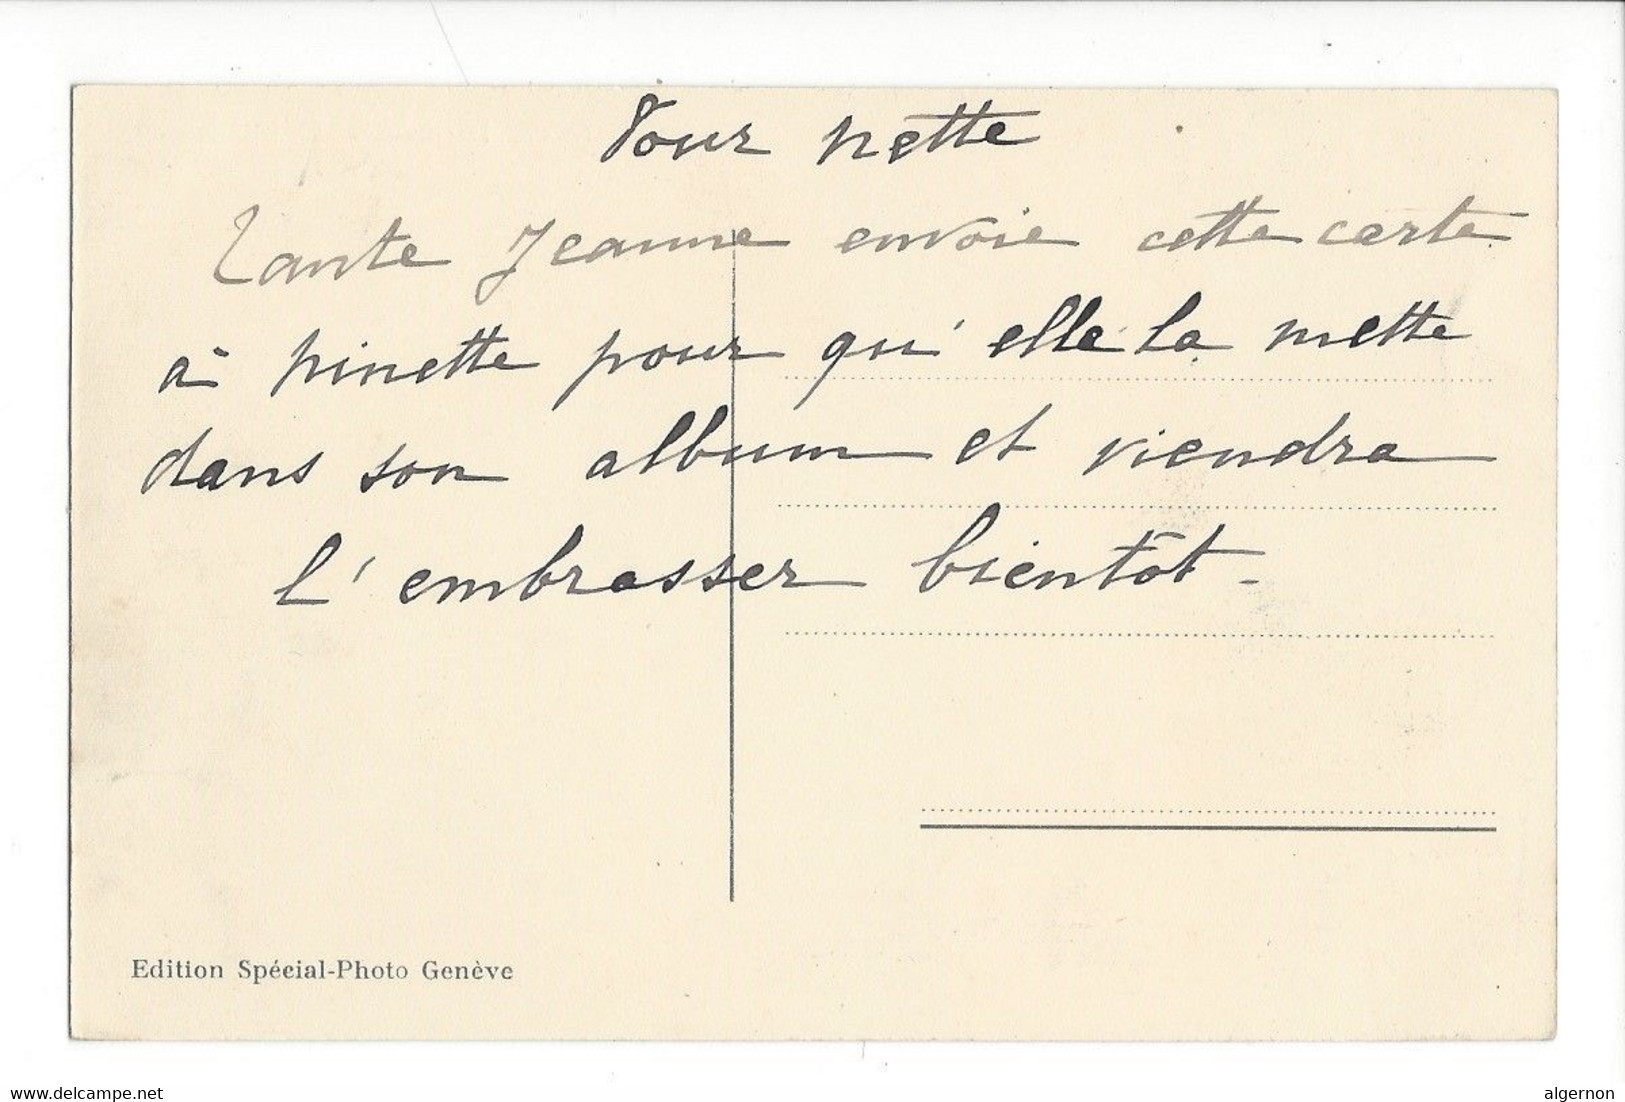 Pour nette
Tante Jeanne envoie cette carte
à ninette pour qu'elle la mette
dans son album et viendra
l'embrasser bientôt.
Edition Spécial-Photo Genève
www.delcampe.net
algernon